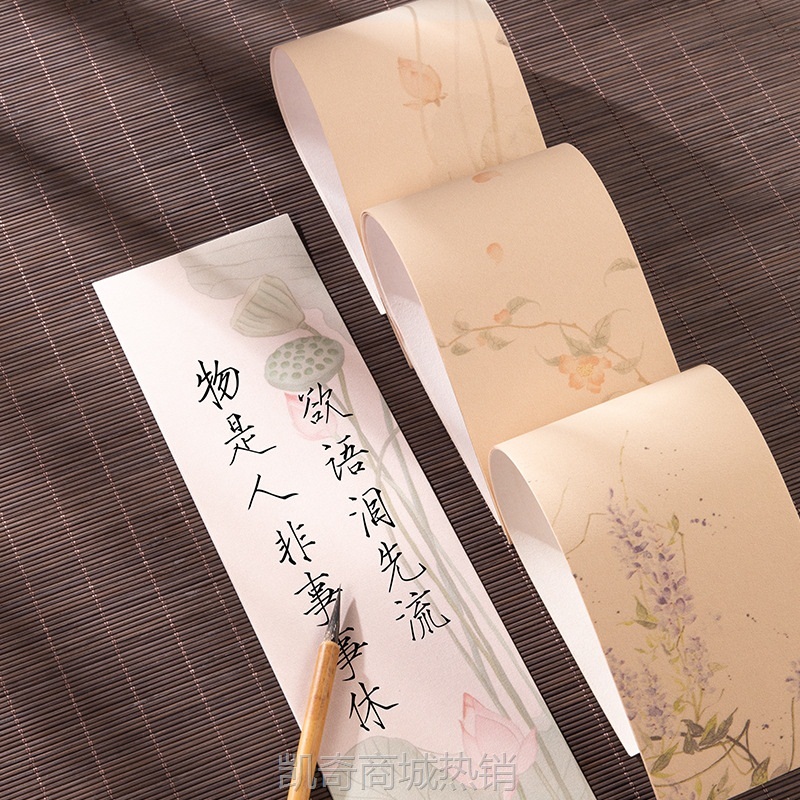 物是人非事事休
欲语泪先流
凯奇商城热销